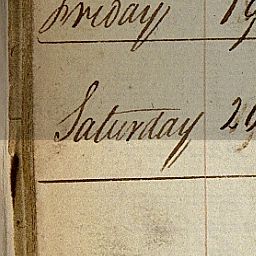 Friday 19
Saturday 29